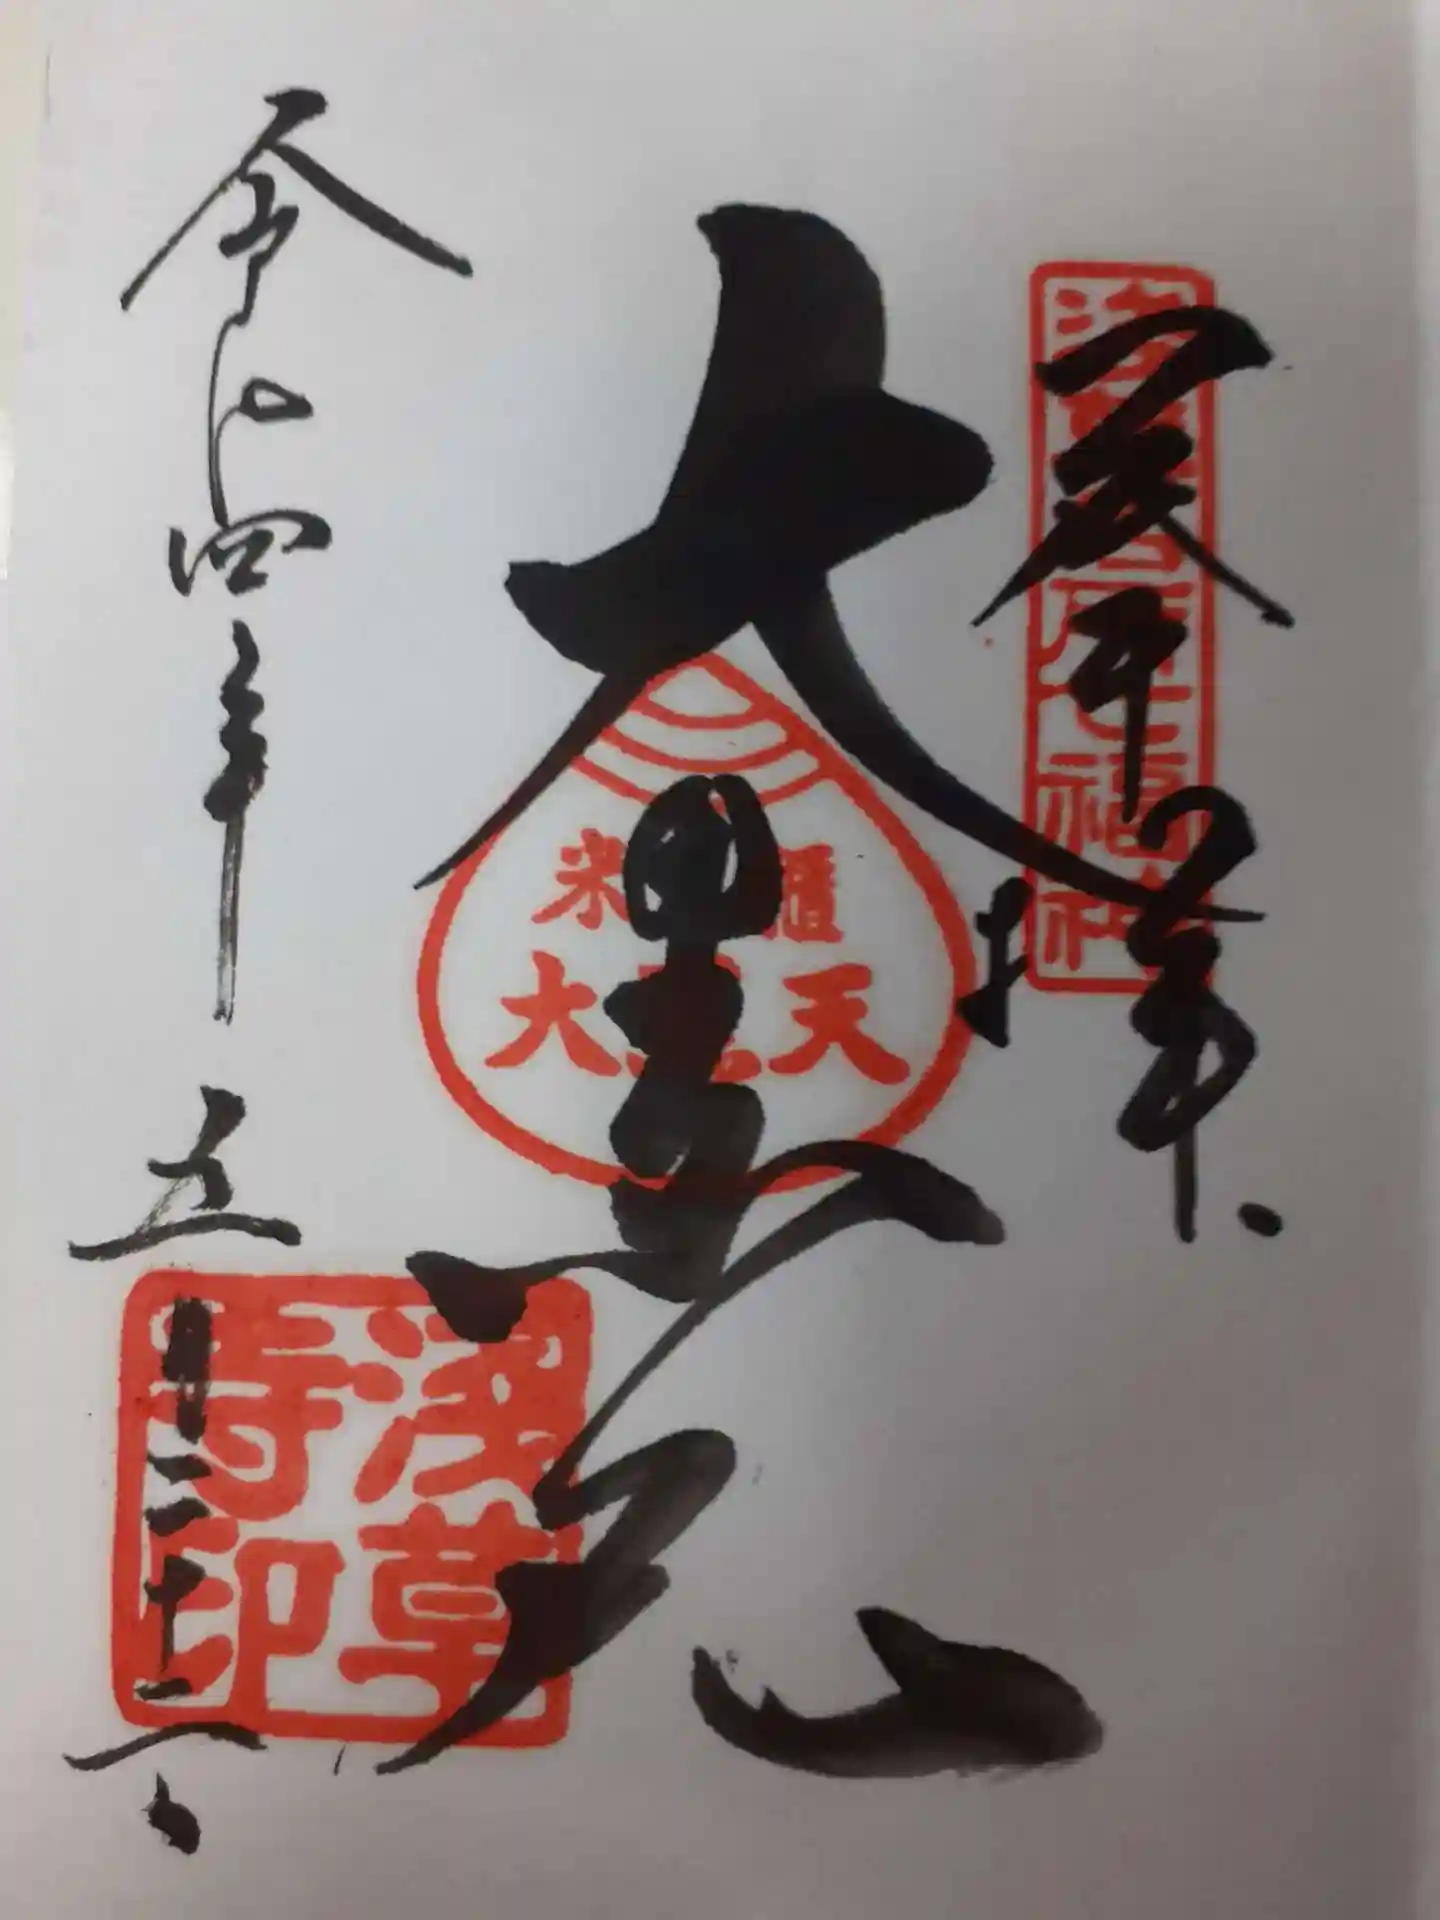 奉拝
浅草名所七福神
大黒天
米櫃
大黒天
浅草寺印
令和四年五月二十二日